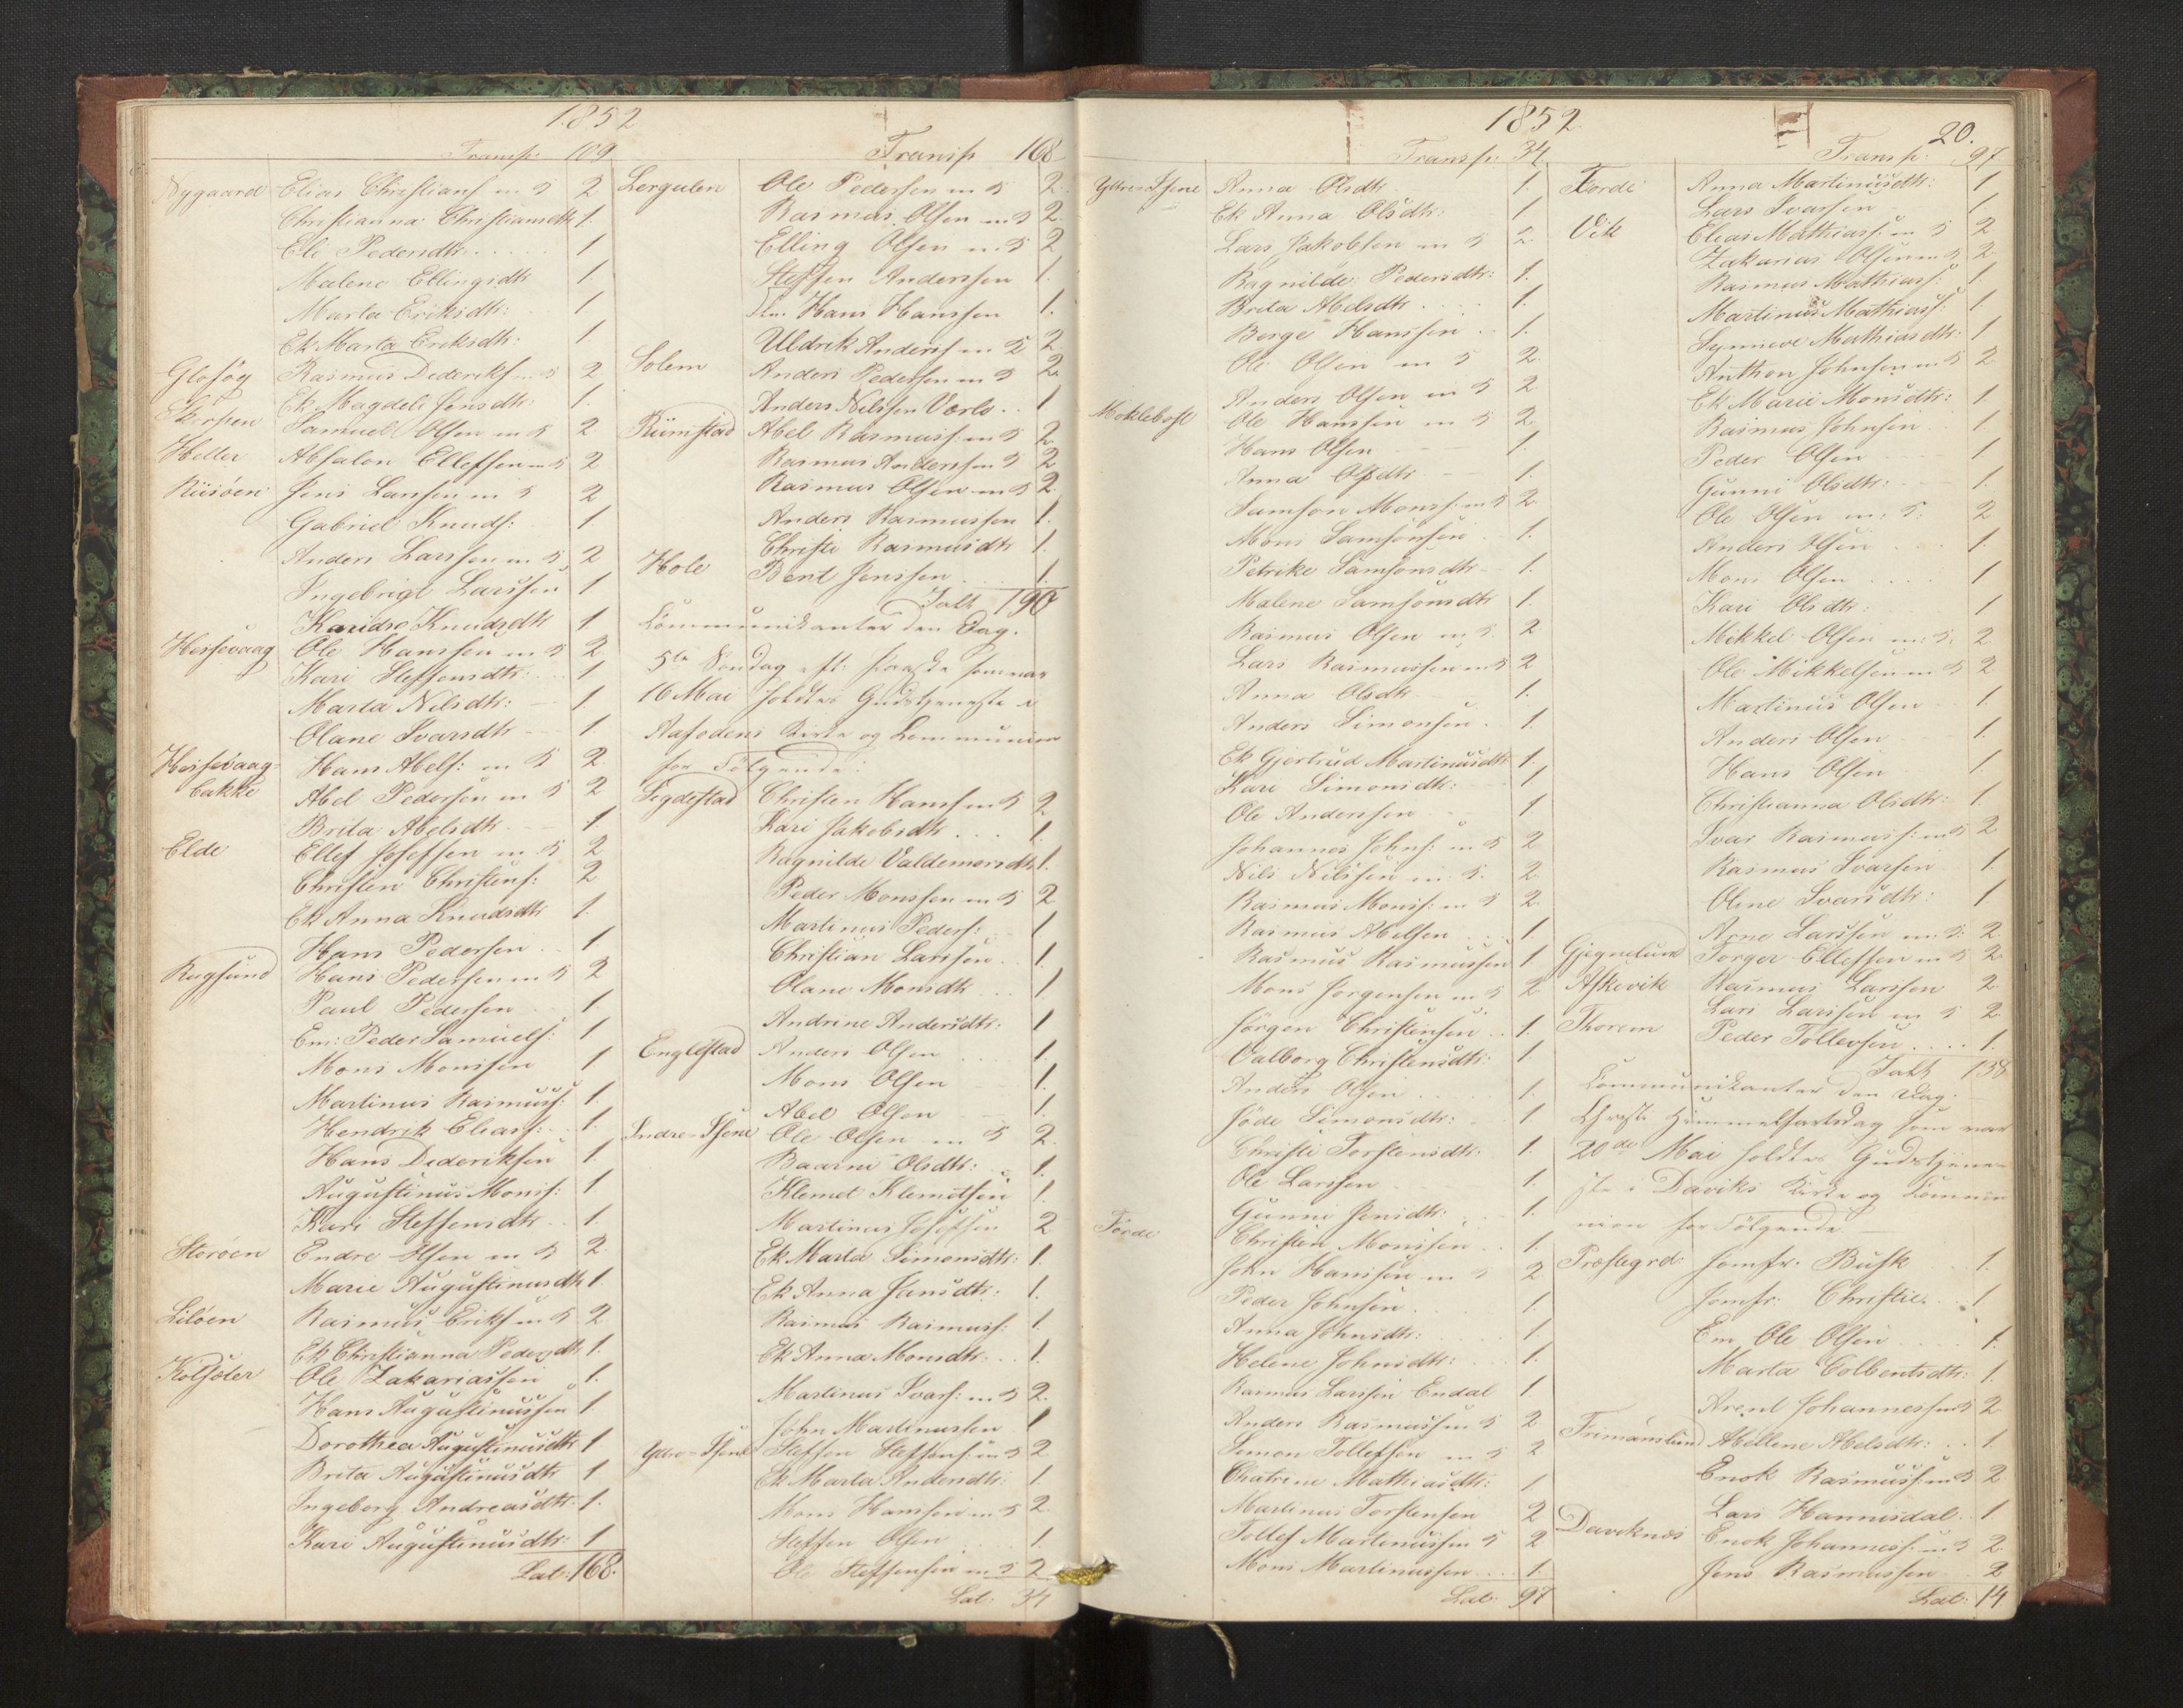 1852
Transp. 109
Nygaard Elias Christians m 5 2
Christianna Christiansdtr 1.
Eli Pedersdtr. 1
Malene Ellingsdtr 1.
Marta Eriksdtr: 1
Ek Marta Eriksdtr: 1
Rasmus Dederiks m 5 2
Ek Magdeli Jensdtr: 1.
Samuel Olsen m 5 2
Heller Absalon Ellefsen m 5 2
Riisöen Jens Larssen m 5 2
Gabriel Knuds: 1.
Anders Larssen m 5 2
Ingebrigt Larssen 1
Knudsdtr 1
Hessevaag Ole Hanssen m 5 2
Kari Steffensdtr: 1
Marta Nilsdtr: 1.
Olane Ivarsdtr 1
Hessevaag= Hans Abels: m 5 2.
bakke Abel Pedersen m 5 2
Brita Abelsdtr 1.
Elde Ellef Josefsen m 5 2
Christen Christens: 2
Ek Anna Knudsdtr 1.
Hans Pedersen 1
Rugsund Hans Pedersen m 5 2
Paul Pedersen 1.
Em: Peder Samuels: 1
Mons Monssen 1
Martinus Rasmuss: 1.
Hendrik Elias: 1.
Hans Dideriksen 1.
Augustinus Mons: 1
Kari Steffensdtr 1.
Storöen Endre Olsen m 5 2.
Marie Augustinusdtr 1.
Liløen Rasmus Eriks m 5 2
Ek Christianna Pedersdtr 1.
Kolsæter Ole Zakariassen 1.
Hans Augustinussen 1.
Dorothea Augustinusdtr 1
Brita Augustinusdtr 1
Ingeborg Andreasdtr: 1.
Kari Augustinusdtr: 1
Lat: 168.
Transp 168
Lergulen Ole Pedersen m 5 2.
Rasmus Olsen m 5 2.
Elling Olsen m 5 2
Steffen Anderssen 1.
Hans Hanssen 1.
Uldrik Anders m 5 2
Solem Anders Pedersen m 5 2.
Anders Nilssen 1
Rimstad Abel Rasmuss: m 5 2
Rasmus Anderssen 5 2
Rasmus Olsen m 5 2
Anders Rasmussen 1.
Christi Rasmusdtr 1.
Hole Bent Jenssen 1.
Ialt 190
Communikanter den Dag.
5te Söndag eft: Paaske som var
16 Mai holdtes Gudstjeneste i
Aafodens Kirke og Communion
for Fölgende:
Tegdestad Christen Hanss m 5 2
Kari Jakobsdtr 1.
Ragnilde Valdemorsdtr 1.
Peder Monssen m 5 2
Martinus Peders: 1
Christian Larssen 1.
Olane Monsdtr 1
Andrine Andersdtr: 1
Englestad Anders Olsen 1.
Mons Olsen 1.
Abel Olsen 1.
Indre- Ole Olsen m 5 2.
Olsdtr: 1.
Klemet Klemetsen 1.
Martinus Josefsen 2
Ek Marta Simonsdtr: 1.
Ek Anna Jansdtr: 1.
Rasmus Rasmuss: 1.
Ek Anna Monsdtr: 1.
Martinus Ivars: m 5 2.
John Martinussen 1
Steffen Steffens: m 5 2
Ek Marta Andersdtr: 1
Mons Hanssen m 5 2.
Steffen Olsen 1.
Ole Steffensen m 5 2
Lat: 34
1852
Transp: 34
Anna Olsdtr. 1.
Ek Anna Olsdtr: 1
Lars Jakobsen m 5 2.
Ragnilde Pedersdtr: 1.
Brita Abelsdtr 1.
Berge Hanssen 1.
Ole Olsen m 5 2.
Anders Olsen m 5 2.
Moklebost Ole Hanssen m 5 2.
Hans Olsen 1.
Anna Olsdtr 1.
Samson Monss: m 5 2.
Mons Samsonsen 1.
Petrike Samsonsdtr 1.
Malene Samsonsdtr 1.
Rasmus Olsen m 5 2
Lars Rasmussen m 5 2
Anna Olsdtr 1.
Anders Simonsen 1.
Ek Gjertrud Martinusdtr 1.
Kari Simonsdtr: 1
Ole Anderssen 1
Johannes Johns: m 5 2
Nils Nilssen m 5. 2.
Rasmus Monss: m 5 2.
Rasmus Abelsen 1.
Rasmus Rasmussen 1
Mons Jorgensen m 5 2
Jörgen Christensen 1.
Valborg Christensdtr: 1.
Anders Olsen 1.
Simonsdtr: 1
Christi Torstensdtr: 1.
Ole Larssen 1.
Gunni Jensdtr: 1.
Förde Christen Monssen 1.
John Hanssen m 5 2
Peder Johnsen 1.
Anna Johnsdtr: 1
Helene Johnsdtr: 1.
Rasmus Larssen Endal 1
Anders Rasmussen 5 2
Simon Tollefsen m 5 2
Chatrine Mathiasdtr: 1
Martinus Torstensen 2
Tollef Martinussen 5 2
Mons Martinussen 1.
Lat: 97
20.
Transp. 97
Förde Anna Martinusdtr: 1
Lars Ivarsen 1.
Vik Elias Mathias: m 5 2
Zakarias Olsen m 5 2
Rasmus Mathias: 1.
Martinus Mathias: 1.
Synneve Mathiasdtr: 1
Anthon Johnsen m 5 2
Ek Marie Monsdtr: 1.
Rasmus Johnsen 1.
Peder Olsen 1
Gunni Olsdtr: 1.
Ole Olsen m: 5. 2
Anders Olsen 1.
Mons Olsen 1
Kari Olsdtr: 1
Mikkel Olsen m: 5. 2
Ole Mikkelsen m 5 2
Martinus Olsen 1.
Anders Olsen 1.
Hans Olsen 1.
Christianna Olsdtr: 1.
Ivar Rasmuss: m 5 2
Rasmus Ivarsen 1.
Oline Ivarsdtr: 1.
Arne Larssen m: 5. 2.
Gjegnelund Torger Ellefsen m 5 2.
Askevik Rasmus Larssen 2.
Lars Larssen m 5 2.
Thorem Peder Tollevsen 1.
Ialt 138
Communikanter den Dag.
Christi Himmelfartsdag som var
20de Mai holdtes Gudstjene-
ste i Daviks Kirke og Commu
nion for Fölgende
Præstegrd Jomfr: Busk 1.
Jomfr: Christie 1
Em Ole Olsen 1.
Marta Colbentsdtr: 1.
Arent Johannessen 5 2
Abellene Abelsdtr: 1.
Enok Rasmuss: m 5 2.
Lars Hannisdal 1.
Daviknæs Enok Johanness: m 5 2.
Jens Rasmussen 2
Lat: 14